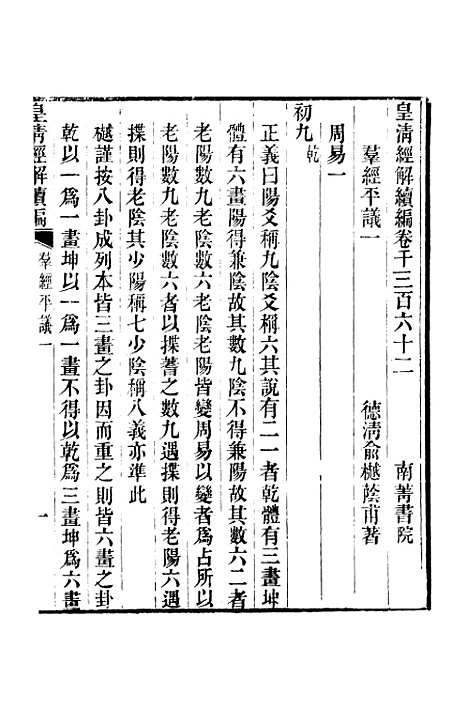 皇淸經解續編卷千三百六十二　南菁書院
羣經平議一　德淸俞樾蔭甫著
周易一
初九乾
正義曰陽爻稱九陰爻稱六其說有二一者乾體有三畫坤
體有六畫陽得兼陰故其數九陰不得兼陽故其數六二者
老陽數九老陰數六老陰老陽皆變周易以變者爲占所以
老陽數九老陰數六者以揲蓍之數九遇揲則得老陽六遇
揲則得老陰其少陽稱七少陰稱八義亦準此
樾謹按八卦成列本皆三畫之卦因而重之則皆六畫之卦
乾以一爲一畫坤以--爲一畫不得以乾爲三畫坤爲六畫
皇淸經解續編　羣經平議一　一